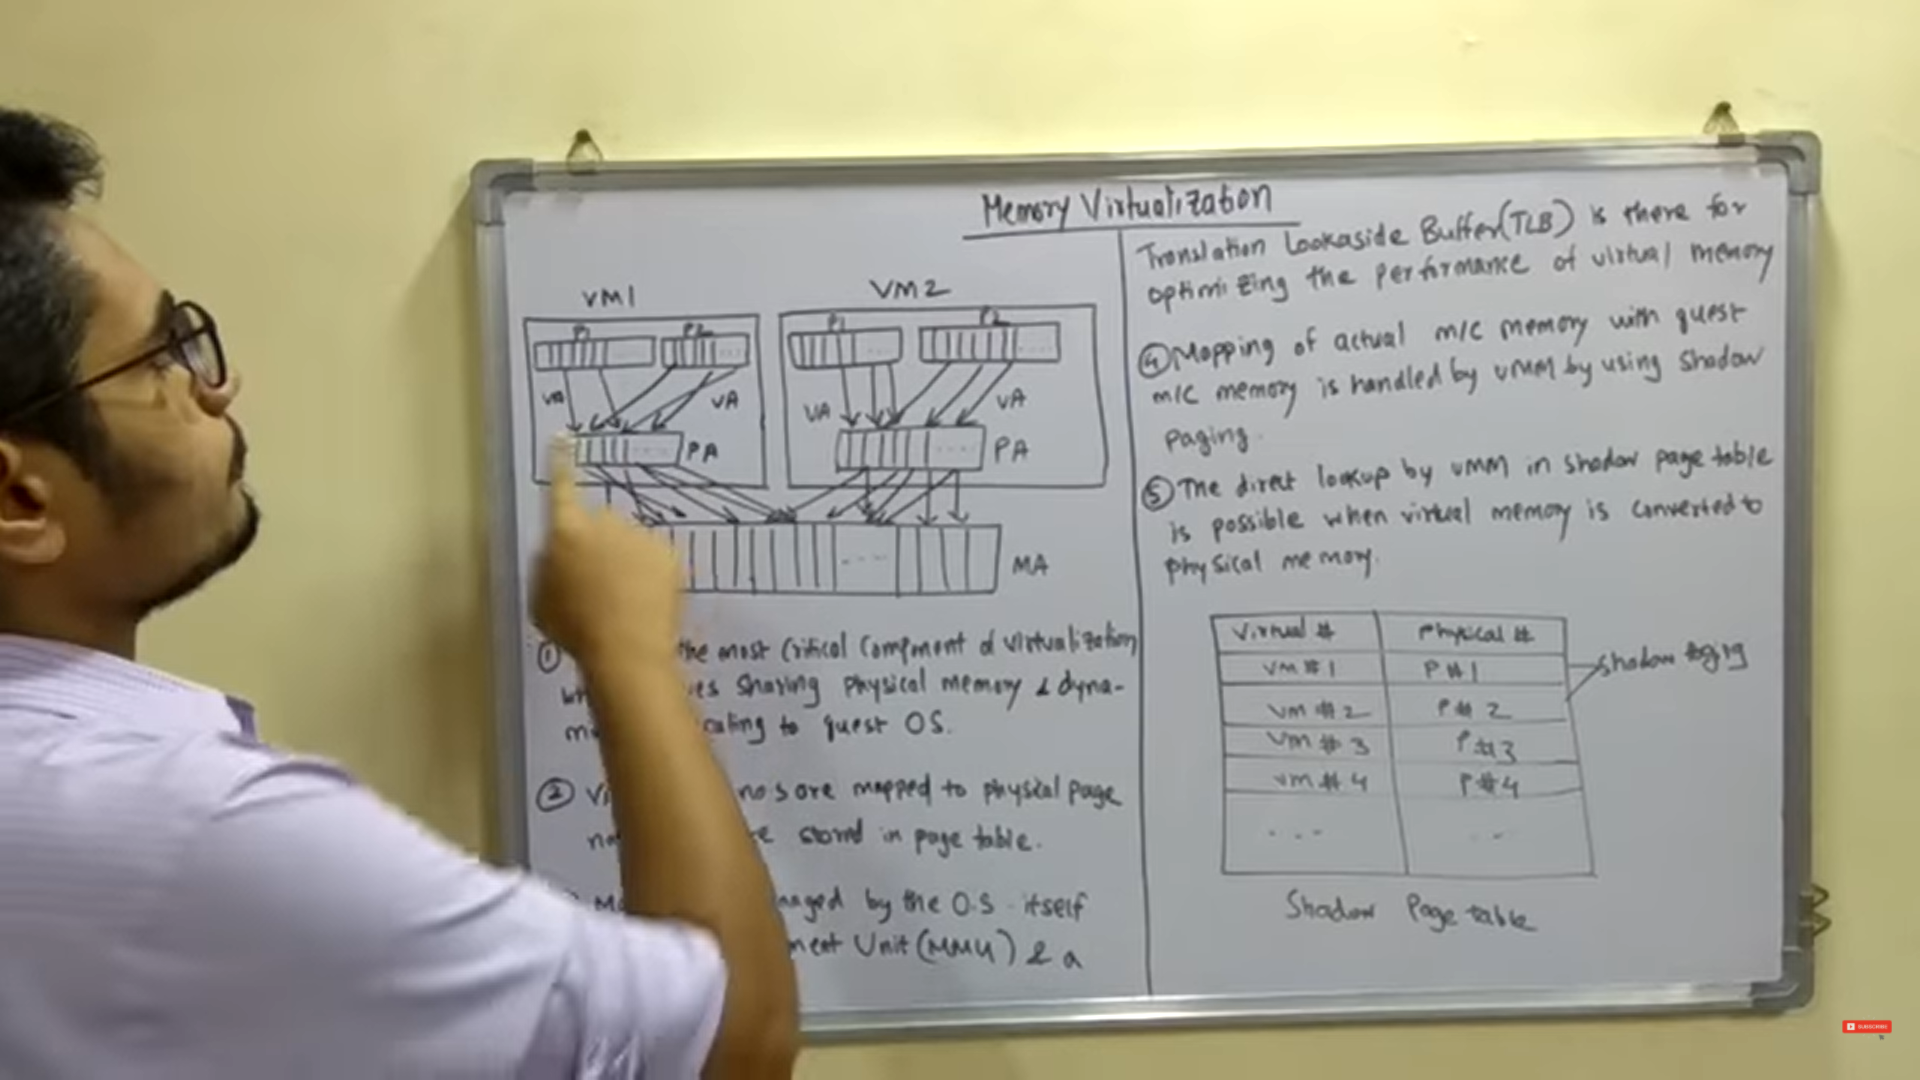 Memory Virtualization
VM1
VM2
P1
P2
P1
P2
VA
VA
VA
VA
PA
PA
MA
① the most Critical Component of virtualization
sharing physical memory & dyna-
to guest OS.
② nos are mapped to physical page
stored in page table.
by the O.S itself
Unit (MMU) & a
Translation Lookaside Buffer(TLB) is there for
optimizing the performance of virtual memory
④ Mapping of actual m/c memory with guest
m/c memory is handled by VMM by using shadow
paging.
⑤ The direct lookup by VMM in shadow page table
is possible when virtual memory is converted to
physical memory.
Virtual # Physical #
VM #1 P #1
VM #2 P# 2
VM # 3 P#3
VM #4 P#4
Shadow Paging
Shadow Page table
SUBSCRIBE